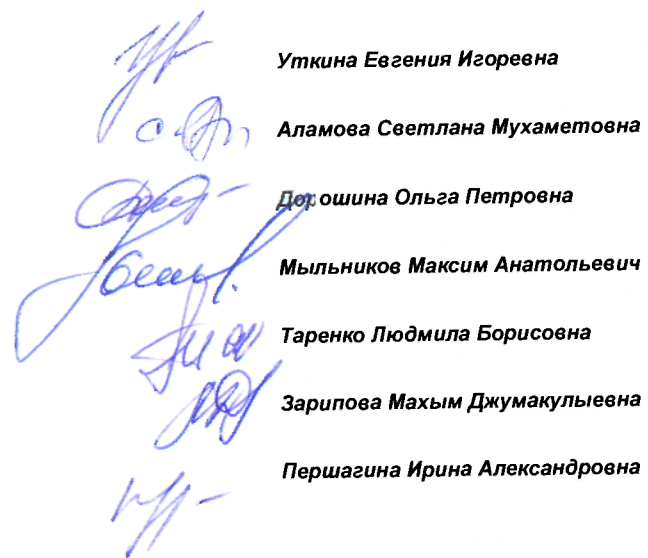 Уткина Евгения Игоревна
Аламова Светлана Мухаметовна
Дорошина Ольга Петровна
Мыльников Максим Анатольевич
Таренко Людмила Борисовна
Зарипова Махым Джумакулыевна
Першагина Ирина Александровна